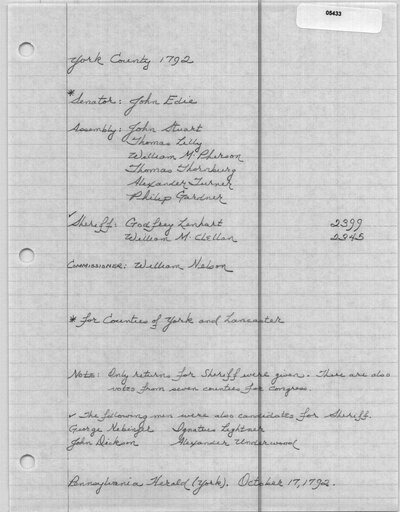 05433
York County 1792
* Senator: John Edie
Assembly: John Stuart
Thomas Lilly
William McPherson
Thomas Thornburg
Alexander Turner
Philip Gardner
✓ Sheriff: Godfrey Lenhart 2399
William McClellan 2345
Commissioner: William Nelson
* for Counties of York and Lancaster
Note: Only returns for Sheriff were given. There are also
votes from seven counties for Congress.
✓ The following men were also candidates for Sheriff.
George Ignatius Lightner
John Dickson Alexander Underwood
Pennsylvania Herald (York). October 17, 1792.